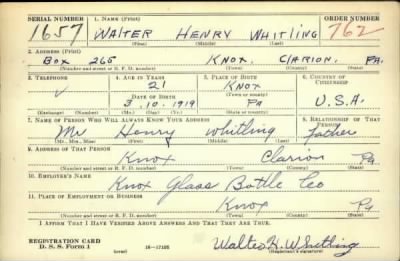 SERIAL NUMBER 1. NAME (Print) ORDER NUMBER
1657 WALTER HENRY WHITLING 762
(First) (Middle) (Last)
2. ADDRESS (Print)
BOX 265 KNOX. CLARION. PA.
(Number and street or R. F. D. number) (Town) (County) (State)
3. TELEPHONE 4. AGE IN YEARS 5. PLACE OF BIRTH 6. COUNTRY OF CITIZENSHIP
21 KNOX
DATE OF BIRTH (Town or county)
3. 10. 1919 PA U.S.A.
(Mo.) (Day) (Yr.) (State or country)
7. NAME OF PERSON WHO WILL ALWAYS KNOW YOUR ADDRESS 8. RELATIONSHIP OF THAT PERSON
Mr Henry Whitling Father
(Mr., Mrs., Miss) (First) (Middle) (Last)
9. ADDRESS OF THAT PERSON
Knox Clarion Pa
(Number and street or R. F. D. number) (Town) (County) (State)
10. EMPLOYER'S NAME
Knox Glass Bottle Co
11. PLACE OF EMPLOYMENT OR BUSINESS
Knox Pa
(Number and street or R. F. D. number) (Town) (County) (State)
I AFFIRM THAT I HAVE VERIFIED ABOVE ANSWERS AND THAT THEY ARE TRUE.
REGISTRATION CARD
D. S. S. Form 1 (over) 16—17105 Walter H. Whitling
(Registrant's signature)